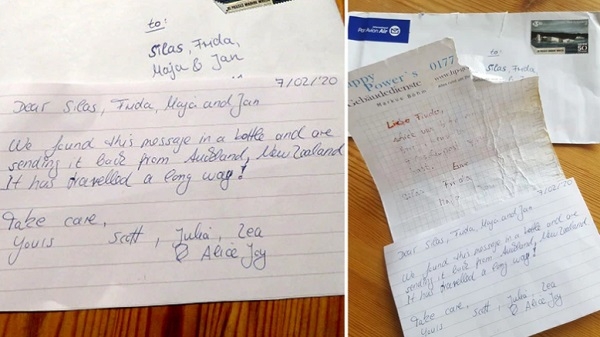 to:
Silas, Frida,
Maja & Jan
7/02/'20
Dear Silas, Frida, Maja and Jan
We found this message in a bottle and are
sending it back from Auckland, New Zealand
It has travelled a long way!
Take care,
Yours Scott, Julia, Lea
& Alice Joy
Par Avion Air
to:
Silas, Frida,
50
ppy Power's 0177
Gebäudedienste
Liebe Frida,
Silas Frida
7/02/'20
Dear Silas, Frida, Maja and Jan
We found this message in a bottle and are
sending it back from Auckland, New Zealand
It has travelled a long way!
Take care,
Yours Scott, Julia, Lea
& Alice Joy